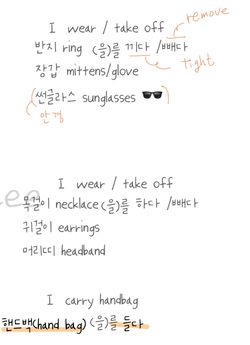 I wear / take off
remove
반지 ring (을)를 끼다 / 빼다
tight
장갑 mittens/glove
(썬글라스 sunglasses 🕶)
안경
I wear / take off
목걸이 necklace (을)를 하다 /빼다
귀걸이 earrings
머리띠 headband
I carry handbag
핸드백(hand bag) (을)를 들다